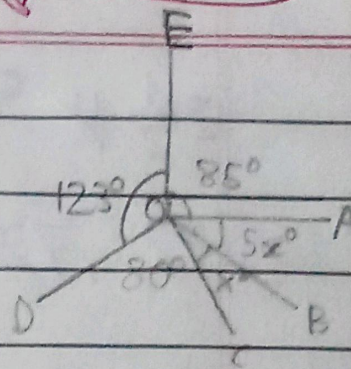 E
123° 85°
O A
5x°
80° x°
D B
C